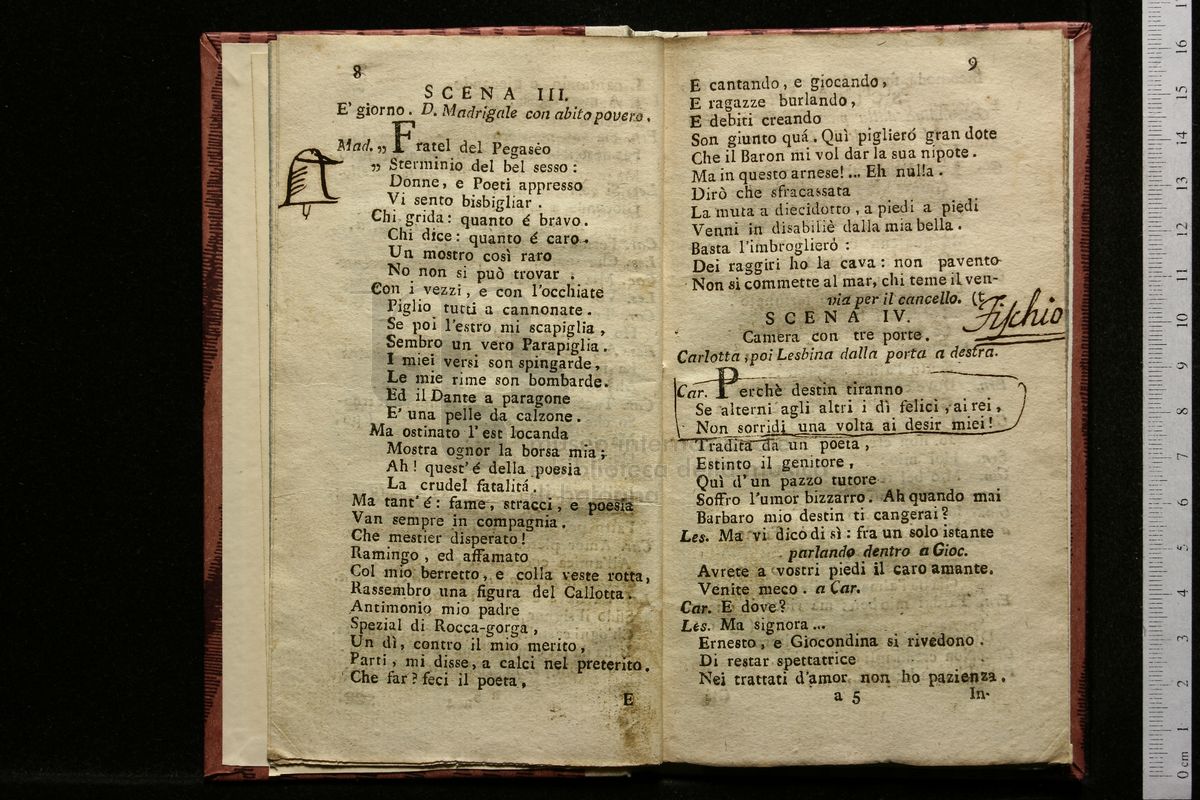 8
SCENA III.
E' giorno. D. Madrigale con abito povero.
Mad. „ Fratel del Pegasèo
„ Sterminio del bel sesso:
Donne, e Poeti appresso
Vi sento bisbigliar.
Chi grida: quanto é bravo.
Chi dice: quanto é caro.
Un mostro così raro
No non si può trovar.
Con i vezzi, e con l'occhiate
Piglio tutti a cannonate.
Se poi l'estro mi scapiglia,
Sembro un vero Parapiglia.
I miei versi son spingarde,
Le mie rime son bombarde.
Ed il Dante a paragone
E' una pelle da calzone.
Ma ostinato l'est locanda
Mostra ognor la borsa mia;
Ah! quest'é della poesia
La crudel fatalitá.
Ma tant'é: fame, stracci, e poesia
Van sempre in compagnia.
Che mestier disperato!
Ramingo, ed affamato
Col mio berretto, e colla veste rotta,
Rassembro una figura del Callotta.
Antimonio mio padre
Spezial di Rocca-gorga,
Un dì, contro il mio merito,
Parti, mi disse, a calci nel preterito.
Che far? feci il poeta,
E
9
E cantando, e giocando,
E ragazze burlando,
E debiti creando
Son giunto quá. Quì piglieró gran dote
Che il Baron mi vol dar la sua nipote.
Ma in questo arnese!... Eh nulla.
Dirò che sfracassata
La muta a diecidotto, a piedi a piedi
Venni in disabiliè dalla mia bella.
Basta l'imbroglieró:
Dei raggiri ho la cava: non pavento
Non si commette al mar, chi teme il ven-
via per il cancello. (t
Fischio
SCENA IV.
Camera con tre porte.
Carlotta, poi Lesbina dalla porta a destra.
Car. Perchè destin tiranno
Se alterni agli altri i dì felici, ai rei,
Non sorridi una volta ai desir miei!
Tradita da un poeta,
Estinto il genitore,
Quì d'un pazzo tutore
Soffro l'umor bizzarro. Ah quando mai
Barbaro mio destin ti cangerai?
Les. Ma vi dico di sì: fra un solo istante
parlando dentro a Gioc.
Avrete a vostri piedi il caro amante.
Venite meco. a Car.
Car. E dove?
Les. Ma signora...
Ernesto, e Giocondina si rivedono.
Di restar spettatrice
Nei trattati d'amor non ho pazienza.
a 5
In-